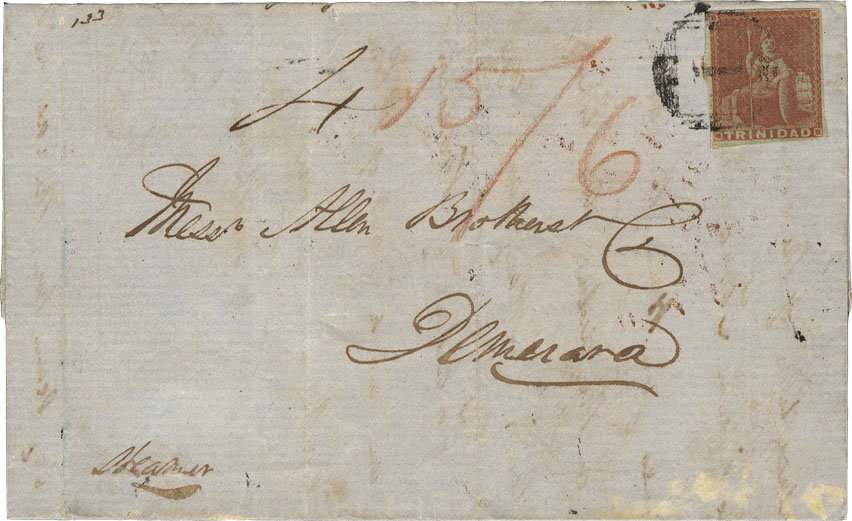 133
TRINIDAD
4
15/6
Mess.rs Allen Brothers & Co
Demerara
steamer